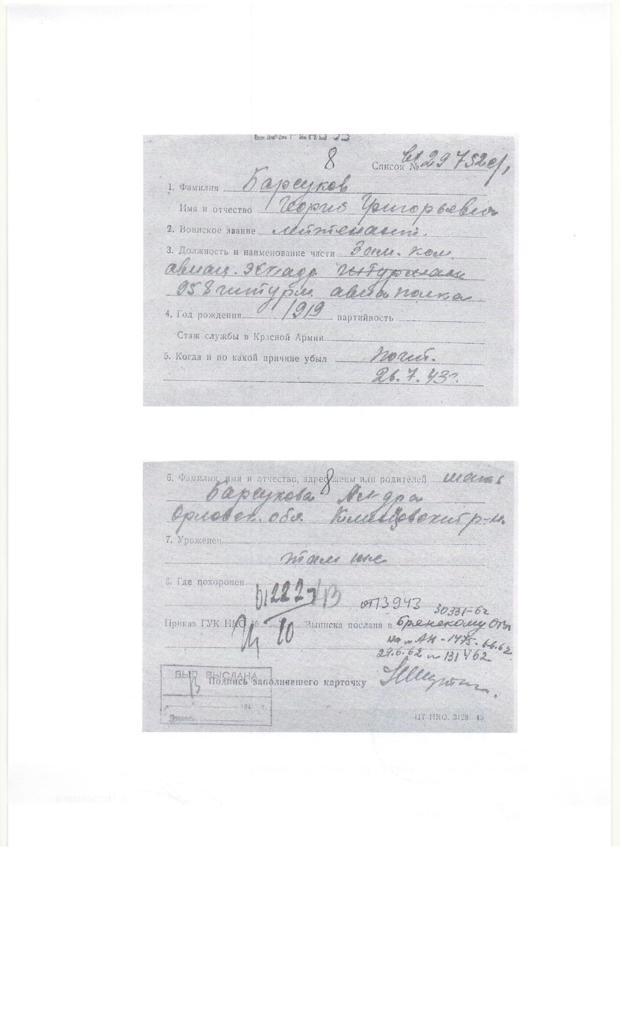 8
Список № вх 29752с/
1. Фамилия Барсуков
Имя и отчество Георгий Григорьевич
2. Воинское звание лейтенант.
3. Должность и наименование части Зам. ком.
авиац. эск
958 штурм. авиаполка
4. Год рождения 1919 партийность
Стаж службы в Красной Армии
5. Когда и по какой причине убыл погиб.
26.7.43г.
8
6. Фамилия, имя и отчество, адрес жены или родителей мать
Барсукова
Орловск. обл. р-н.
7. Уроженец
там же
8. Где похоронен
Приказ ГУК НКО № Выписка послана в Брянскому
от 1943 30331-62
29.6.62
ВЫП ВЫСЛАНА
Подпись заполнившего карточку
194 г.
ЦТ НКО. 3128—45